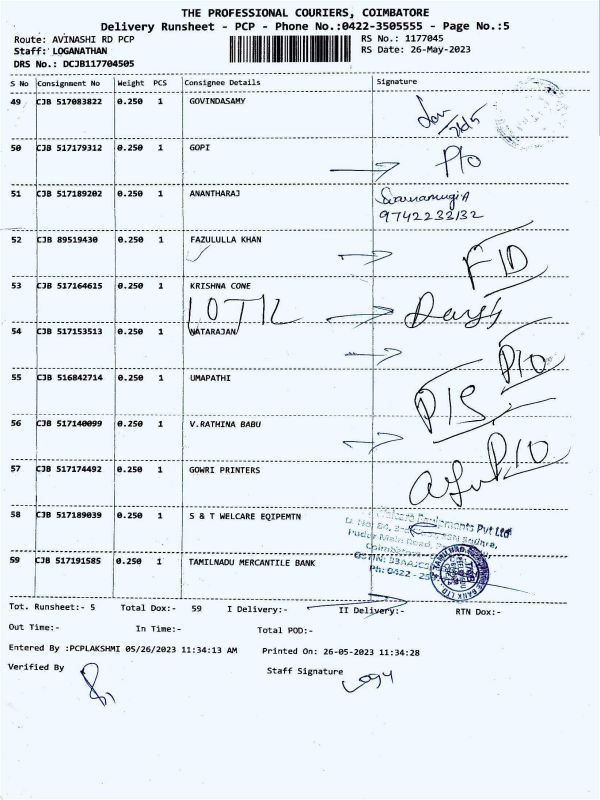 THE PROFESSIONAL COURIERS, COIMBATORE
Delivery Runsheet - PCP - Phone No.:0422-3505555 - Page No.:5
Route: AVINASHI RD PCP RS No.: 1177045
Staff: LOGANATHAN RS Date: 26-May-2023
DRS No.: DCJB117704505
S No Consignment No Weight PCS Consignee Details Signature
49 CJB 517083822 0.250 1 GOVINDASAMY
50 CJB 517179312 0.250 1 GOPI P/o
51 CJB 517189202 0.250 1 ANANTHARAJ
9742233132
52 CJB 89519430 0.250 1 FAZULULLA KHAN F/D
53 CJB 517164615 0.250 1 KRISHNA CONE
54 CJB 517153513 0.250 1 NATARAJAN P/O
55 CJB 516842714 0.250 1 UMAPATHI P/S
56 CJB 517140099 0.250 1 V.RATHINA BABU
57 CJB 517174492 0.250 1 GOWRI PRINTERS P/O
58 CJB 517189039 0.250 1 S & T WELCARE EQIPEMTN
Pvt Ltd
59 CJB 517191585 0.250 1 TAMILNADU MERCANTILE BANK
Ph: 0422 -
Tot. Runsheet:- 5 Total Dox:- 59 I Delivery:- II Delivery:- RTN Dox:-
Out Time:- In Time:- Total POD:-
Entered By :PCPLAKSHMI 05/26/2023 11:34:13 AM Printed On: 26-05-2023 11:34:28
Verified By Staff Signature